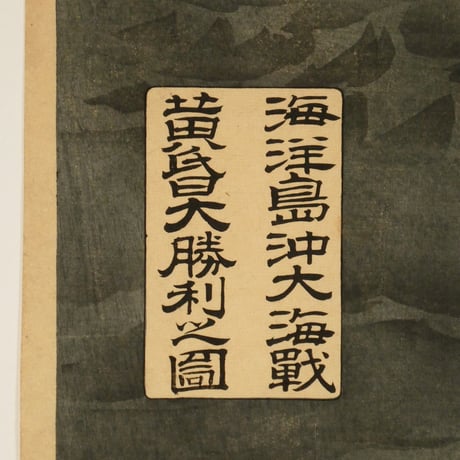 海洋島沖大海戰
黄昏大勝利之圖